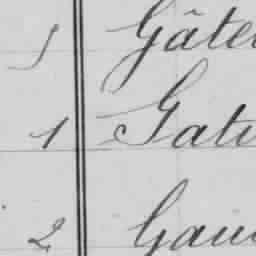 1 Gâte
1 Gatu
2 Gau